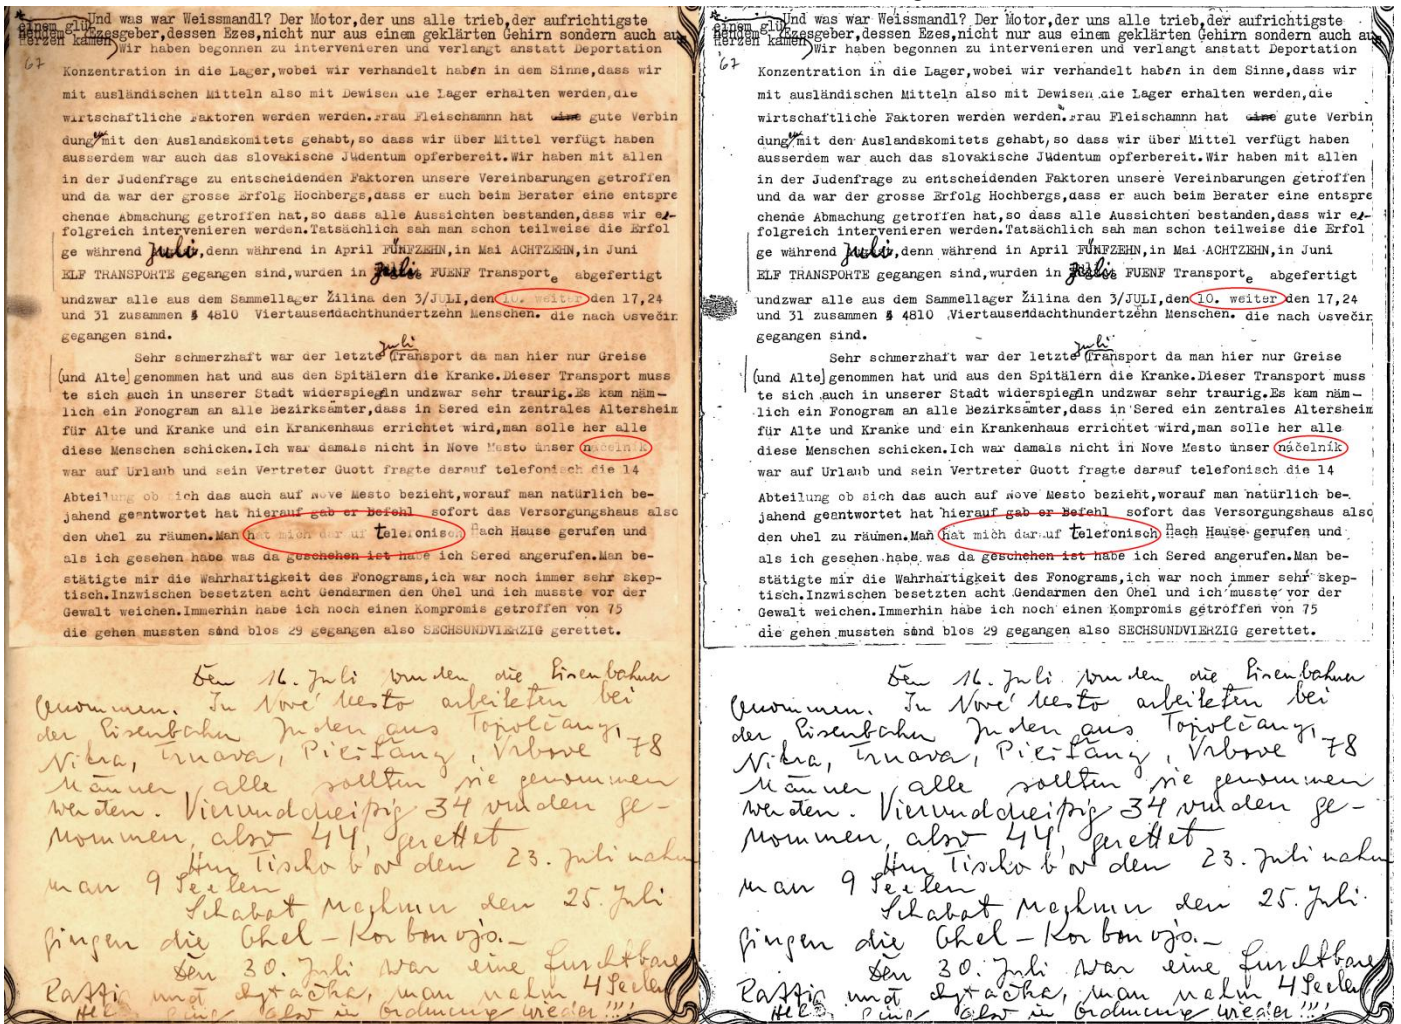 einem glü
hendem
Herzen kamen
Und was war Weissmandl? Der Motor,der uns alle trieb,der aufrichtigste
Ezesgeber,dessen Ezes,nicht nur aus einem geklärten Gehirn sondern auch aus
Wir haben begonnen zu intervenieren und verlangt anstatt Deportation
'67
Konzentration in die Lager,wobei wir verhandelt haben in dem Sinne,dass wir
mit ausländischen Mitteln also mit Dewisen die Lager erhalten werden,die
wirtschaftliche Faktoren werden werden.Frau Fleischamnn hat eine gute Verbin
dungen mit den Auslandskomitets gehabt,so dass wir über Mittel verfügt haben
ausserdem war auch das slovakische Judentum opferbereit.Wir haben mit allen
in der Judenfrage zu entscheidenden Faktoren unsere Vereinbarungen getroffen
und da war der grosse Erfolg Hochbergs,dass er auch beim Berater eine entspre
chende Abmachung getroffen hat,so dass alle Aussichten bestanden,dass wir er-
folgreich intervenieren werden.Tatsächlich sah man schon teilweise die Erfol
ge während Juli,denn während in April FÜNFZEHN,in Mai ACHTZEHN,in Juni
ELF TRANSPORTE gegangen sind,wurden in Juli FUENF Transporte abgefertigt
undzwar alle aus dem Sammellager Žilina den 3/JULI,den 10. weiter den 17,24
und 31 zusammen 4810 Viertausendachthundertzehn Menschen. die nach Osvečin
gegangen sind.
Sehr schmerzhaft war der letzte Juli Transport da man hier nur Greise
(und Alte) genommen hat und aus den Spitälern die Kranke.Dieser Transport muss
te sich auch in unserer Stadt widerspiegln undzwar sehr traurig.Es kam näm-
lich ein Fonogram an alle Bezirksämter,dass in Sered ein zentrales Altersheim
für Alte und Kranke und ein Krankenhaus errichtet wird,man solle her alle
diese Menschen schicken.Ich war damals nicht in Nove Mesto unser náčelník
war auf Urlaub und sein Vertreter Guott fragte darauf telefonisch die 14
Abteilung ob sich das auch auf Nove Mesto bezieht,worauf man natürlich be-
jahend geantwortet hat hierauf gab er Befehl sofort das Versorgungshaus also
den Ohel zu räumen.Man hat mich darauf telefonisch nach Hause gerufen und
als ich gesehen habe was da geschehen ist habe ich Sered angerufen.Man be-
stätigte mir die Wahrhaftigkeit des Fonograms,ich war noch immer sehr skep-
tisch.Inzwischen besetzten acht Gendarmen den Ohel und ich musste vor der
Gewalt weichen.Immerhin habe ich noch einen Kompromis getroffen von 75
die gehen mussten sind blos 29 gegangen also SECHSUNDVIERZIG gerettet.
Den 16. Juli wurden die Eisenbahner
genommen. In Nové Mesto arbeiteten bei
der Eisenbahn Juden aus Topolčany,
Nitra, Trnava, Piešťany, Vrbove 78
Männer, alle sollten sie genommen
werden. Vierunddreißig 34 wurden ge-
nommen, also 44, gerettet
Am Tischo b'ov den 23. Juli nahm
man 9 Seelen
Schabat Nachmu den 25. Juli.
gingen die Ohel-Korbonojs.-
Den 30. Juli war eine furchtbare
Razzia und chytačka, man nahm 4 Seelen
ging also in Ordnung wieder!!!
einem glü
hendem
Herzen kamen
Und was war Weissmandl? Der Motor,der uns alle trieb,der aufrichtigste
Ezesgeber,dessen Ezes,nicht nur aus einem geklärten Gehirn sondern auch aus
Wir haben begonnen zu intervenieren und verlangt anstatt Deportation
'67
Konzentration in die Lager,wobei wir verhandelt haben in dem Sinne,dass wir
mit ausländischen Mitteln also mit Dewisen die Lager erhalten werden,die
wirtschaftliche Faktoren werden werden.Frau Fleischamnn hat eine gute Verbin
dungen mit den Auslandskomitets gehabt,so dass wir über Mittel verfügt haben
ausserdem war auch das slovakische Judentum opferbereit.Wir haben mit allen
in der Judenfrage zu entscheidenden Faktoren unsere Vereinbarungen getroffen
und da war der grosse Erfolg Hochbergs,dass er auch beim Berater eine entspre
chende Abmachung getroffen hat,so dass alle Aussichten bestanden,dass wir er-
folgreich intervenieren werden.Tatsächlich sah man schon teilweise die Erfol
ge während Juli,denn während in April FÜNFZEHN,in Mai ACHTZEHN,in Juni
ELF TRANSPORTE gegangen sind,wurden in Juli FUENF Transporte abgefertigt
undzwar alle aus dem Sammellager Žilina den 3/JULI,den 10. weiter den 17,24
und 31 zusammen 4810 Viertausendachthundertzehn Menschen. die nach Osvečin
gegangen sind.
Sehr schmerzhaft war der letzte Juli Transport da man hier nur Greise
(und Alte) genommen hat und aus den Spitälern die Kranke.Dieser Transport muss
te sich auch in unserer Stadt widerspiegln undzwar sehr traurig.Es kam näm-
lich ein Fonogram an alle Bezirksämter,dass in Sered ein zentrales Altersheim
für Alte und Kranke und ein Krankenhaus errichtet wird,man solle her alle
diese Menschen schicken.Ich war damals nicht in Nove Mesto unser náčelník
war auf Urlaub und sein Vertreter Guott fragte darauf telefonisch die 14
Abteilung ob sich das auch auf Nove Mesto bezieht,worauf man natürlich be-
jahend geantwortet hat hierauf gab er Befehl sofort das Versorgungshaus also
den Ohel zu räumen.Man hat mich darauf telefonisch nach Hause gerufen und
als ich gesehen habe was da geschehen ist habe ich Sered angerufen.Man be-
stätigte mir die Wahrhaftigkeit des Fonograms,ich war noch immer sehr skep-
tisch.Inzwischen besetzten acht Gendarmen den Ohel und ich musste vor der
Gewalt weichen.Immerhin habe ich noch einen Kompromis getroffen von 75
die gehen mussten sind blos 29 gegangen also SECHSUNDVIERZIG gerettet.
Den 16. Juli wurden die Eisenbahner
genommen. In Nové Mesto arbeiteten bei
der Eisenbahn Juden aus Topolčany,
Nitra, Trnava, Piešťany, Vrbove 78
Männer, alle sollten sie genommen
werden. Vierunddreißig 34 wurden ge-
nommen, also 44, gerettet
Am Tischo b'ov den 23. Juli nahm
man 9 Seelen
Schabat Nachmu den 25. Juli.
gingen die Ohel-Korbonojs.-
Den 30. Juli war eine furchtbare
Razzia und chytačka, man nahm 4 Seelen
ging also in Ordnung wieder!!!